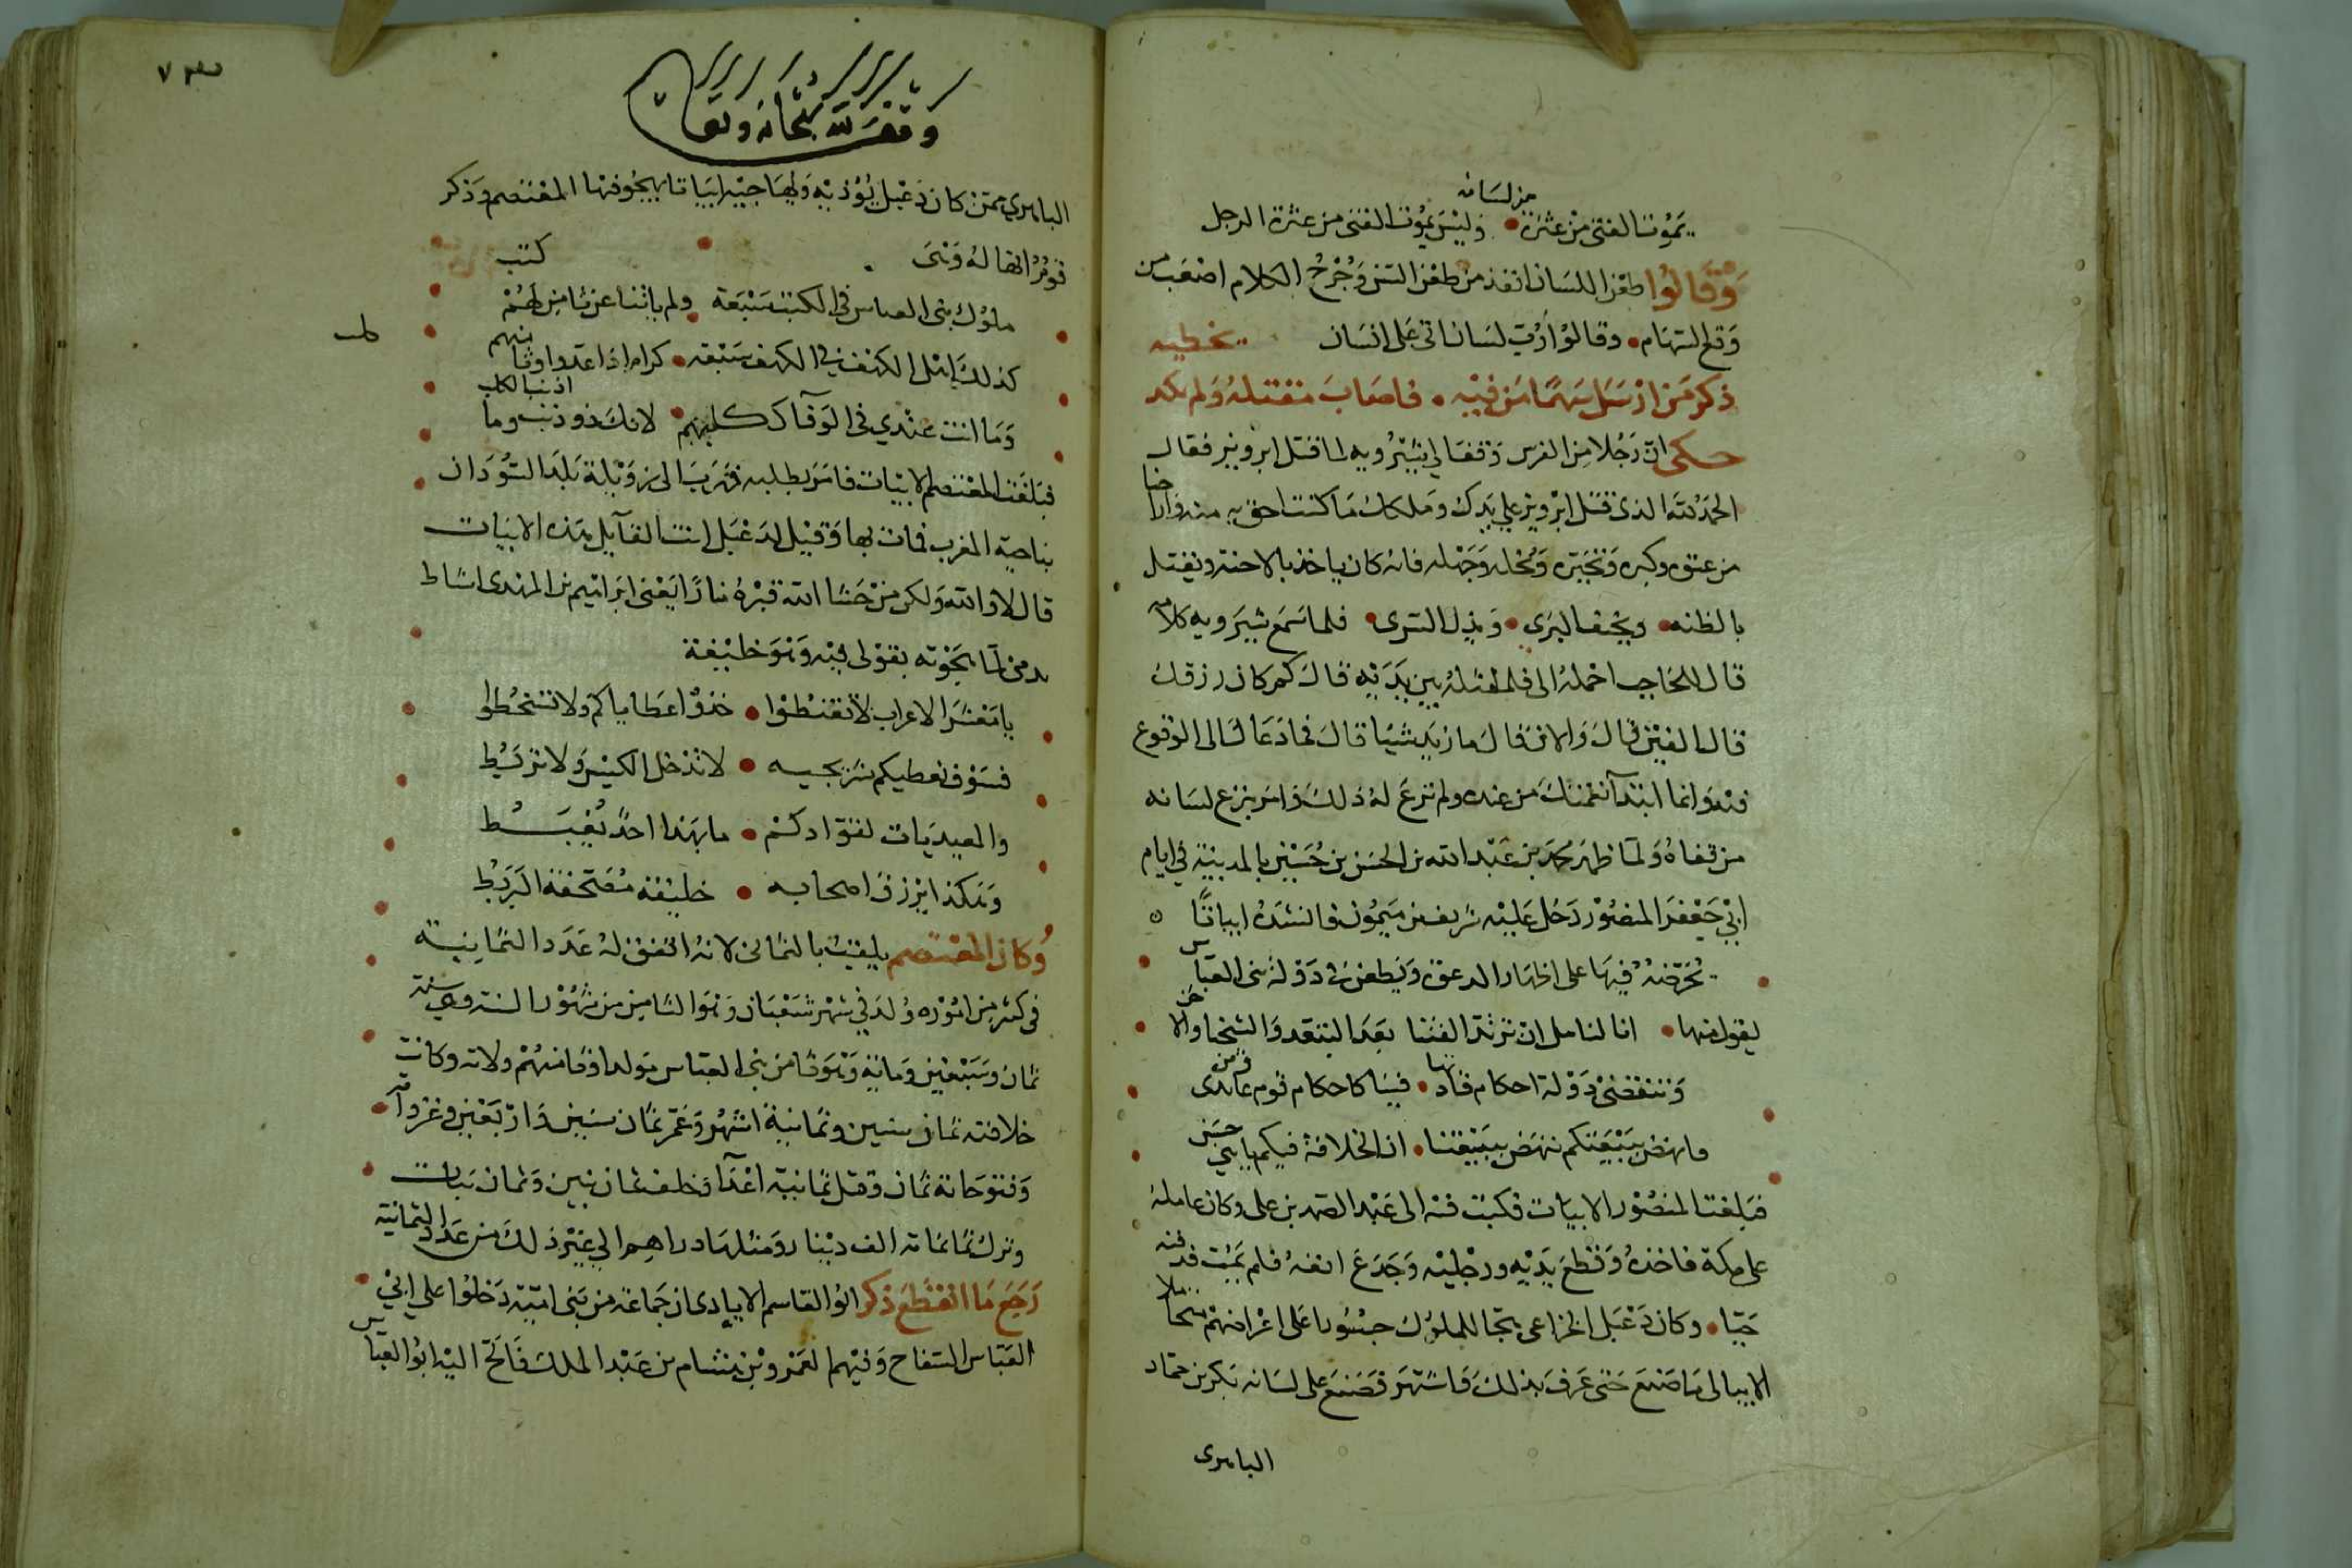 يموت الفتى من عثرة من لسانه • وليس يموت الفتى من عثرة الرجل
وقالوا طعن اللسان انفذ من طعن السنن وجرح الكلام اصعب من
وقع السهام • وقالوا رُب لسان اتى على انسان
ذكر من ارسل سهما من فيه • فاصاب مقتله ولم يكد يخطيه
حكى ان رجلا من الفرس وقف الى شيرويه لما قتل ابرويز فقال
الحمد لله الذى قتل ابرويز على يدك وملكك ما كنت احق به منه واراحنا
من عتوه وكبره وتجبره وبخله وجهله فانه كان ياخذ بالاحنة ويقتل
بالظنه • ويخيف البرى • ويذل السرى • فلما سمع شيرويه كلامه
قال للحاجب احمله الى فلما مثله بين يديه قال كم كان رزقك
قال الفين قال والان قال ما زيد شيئا قال فما دعاك الى الوقوع
فيه وانما ابتدا نعمتك من عنده ولم ترع له ذلك وامر بنزع لسانه
من قفاه ولما ظهر محمد بن عبد الله بن الحسن بن حسين بالمدينة في ايام
ابي جعفر المنصور دخل عليه شريف بن ميمون فانشده ابياتا ه
يحرضه فيها على اظهار الدعوة ويطعن في دولة بنى العباس
يقول فيها • انا لنامل ان ترتد الفتنا بعد التبعد والشحنا والاحن
وتنقضى دولة احكام قادتها • فينا كاحكام قوم عابدى وثن
فانهض ببيعتكم ننهض ببيعتنا • ان الخلافة فيكم يابني حسن
فبلغت المنصور الابيات فكتب فيه الى عبد الصمد بن على وكان عامله
على مكة فاخذه وقطع يديه ورجليه وجدع انفه فلم يمت فدفنه
حيا • وكان دعبل الخزاعى هجا للملوك جسورا على اعراضهم متحاملا
لا يبالى ما صنع حتى عرف بذلك واشتهر فصنع على لسانه بكر بن حماد
الباهرى
وقف لله سبحانه وتعالى
الباهري ممن كان دعبل يؤذيه ويهاجيه ابياتا يهجو فيها المعتصم وذكر
قوم انها له وهى
ملوك بنى العباس في الكتب سبعة • ولم ياتنا عن ثامن لهم كتب
كذلك اهل الكهف في الكهف سبعة • كرام اذا عدوا وثامنهم كلب
وما انت عندي في الوفا ككلبهم • لانك ذو ذنب وما اذنب الكلب
فبلغت المعتصم الابيات فامر بطلبه فهرب الى زويلة بلد السودان
بناحية المغرب فمات بها وقيل لدعبل انت القايل هذه الابيات
قال لا والله ولكن من حشا الله قبره نارا يعنى ابراهيم بن المهدى اشاط
بدمى لما هجوته بقولى فيه وهو خليفة
يا معشر الاعراب لا تقنطوا • خذوا عطاياكم ولا تسخطوا
فسوف نعطيكم سريجيه • لا تدخل الكيس ولا تربط
والمعبديات لقوادكم • ما بهذا احد يغبط
وهكذا يرزق اصحابه • خليفة مصحفه البربط
وكان المعتصم يلقب بالثماني لانه اتفق له عدد الثمانيه
فى كثير من اموره ولد في شهر شعبان وهو الثامن من شهور السنه وهي سنة
ثمان وسبعين ومائة وهو ثامن بني العباس مولدا وثامنهم ولاته وكانت
خلافته ثمان سنين وثمانية اشهر وعمر ثمان سنين واربعين وغزواته
وفتوحاته ثمان وقتل ثمانية اعدا وخلف ثمان بنين وثمان بنات
وترك ثمانمائه الف دينار ومثلها دراهم الي غير ذلك من عدد الثمانية
رجع ما انقطع ذكر ابو القاسم الايادى ان جماعة من بنى امية دخلوا على ابي
العباس السفاح وفيهم الغمر وبن هشام بن عبد الملك فاتح اليه ابو العباس